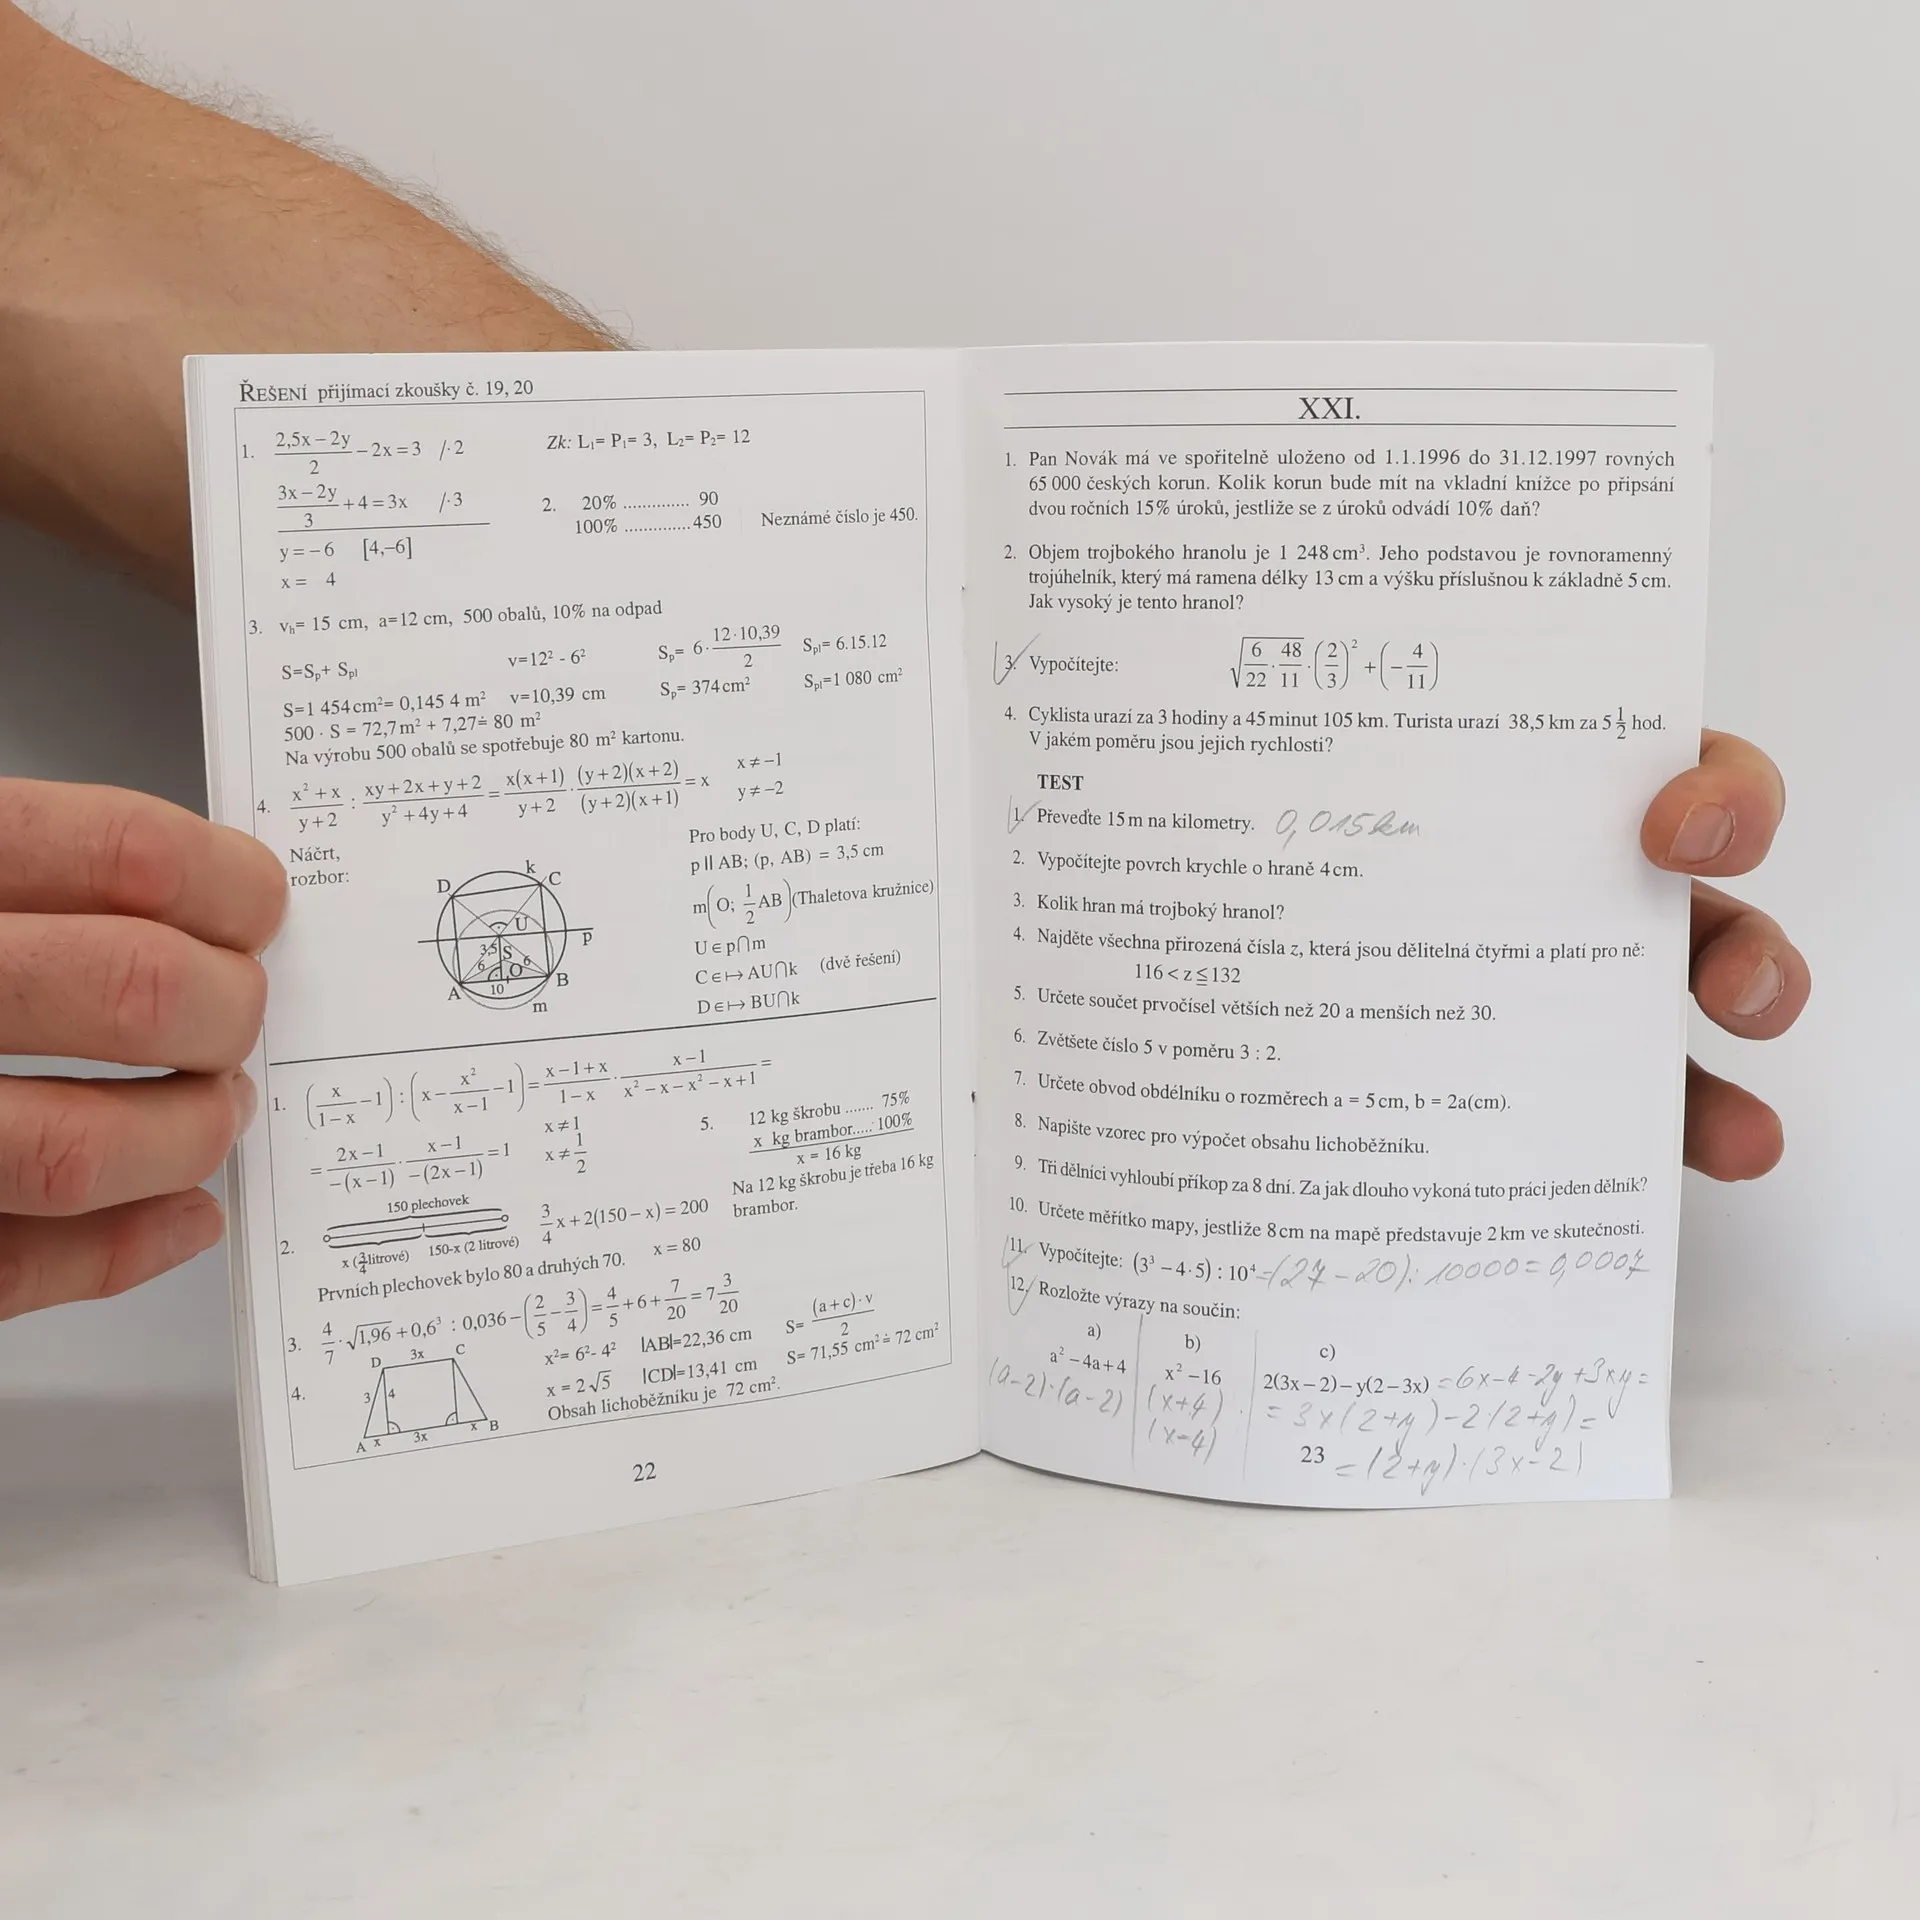 ŘEŠENÍ přijímací zkoušky č. 19, 20
1. (2,5x – 2y)/2 – 2x = 3 /·2
Zk: L₁= P₁= 3, L₂= P₂= 12
(3x – 2y)/3 + 4 = 3x /·3
y = – 6 [4,–6]
x = 4
2. 20% .............. 90
100% .............. 450 Neznámé číslo je 450.
3. vₕ= 15 cm, a=12 cm, 500 obalů, 10% na odpad
S=Sₚ+ Sₚₗ v=12² - 6² Sₚ= 6·(12·10,39)/2 Sₚₗ= 6.15.12
S=1 454 cm²= 0,145 4 m² v=10,39 cm Sₚ= 374 cm² Sₚₗ=1 080 cm²
500 · S = 72,7 m² + 7,27≐ 80 m²
Na výrobu 500 obalů se spotřebuje 80 m² kartonu.
4. (x² + x)/(y + 2) : (xy + 2x + y + 2)/(y² + 4y + 4) = x(x + 1)/(y + 2) · (y + 2)(x + 2)/(y + 2)(x + 1) = x x ≠ –1
y ≠ –2
Náčrt,
rozbor:
D k C
U p
3,5 S
6 O 6
A 10 B
m
Pro body U, C, D platí:
p || AB; (p, AB) = 3,5 cm
m(O; 1/2 AB)(Thaletova kružnice)
U ∈ p⋂m
C ∈ ↦ AU⋂k (dvě řešení)
D ∈ ↦ BU⋂k
1. (x/(1 – x) – 1) : (x – x²/(x – 1) – 1) = (x – 1 + x)/(1 – x) · (x – 1)/(x² – x – x² – x + 1) =
= (2x – 1)/(–(x – 1)) · (x – 1)/(–(2x – 1)) = 1 x ≠ 1
x ≠ 1/2
5. 12 kg škrobu ....... 75%
x kg brambor..... 100%
x = 16 kg
Na 12 kg škrobu je třeba 16 kg
brambor.
150 plechovek
2. x (3/4 litrové) 150-x (2 litrové)
3/4 x + 2(150 – x) = 200
x = 80
Prvních plechovek bylo 80 a druhých 70.
3. 4/7 · √1,96 + 0,6³ : 0,036 – (2/5 – 3/4) = 4/5 + 6 + 7/20 = 7 3/20
4. D 3x C
3 4
A x 3x x B
x²= 6²- 4² |AB|=22,36 cm S= (a + c) · v/2
x = 2√5 |CD|=13,41 cm S= 71,55 cm² ≐ 72 cm²
Obsah lichoběžníku je 72 cm².
22
XXI.
1. Pan Novák má ve spořitelně uloženo od 1.1.1996 do 31.12.1997 rovných
65 000 českých korun. Kolik korun bude mít na vkladní knížce po připsání
dvou ročních 15% úroků, jestliže se z úroků odvádí 10% daň?
2. Objem trojbokého hranolu je 1 248 cm³. Jeho podstavou je rovnoramenný
trojúhelník, který má ramena délky 13 cm a výšku příslušnou k základně 5 cm.
Jak vysoký je tento hranol?
3. Vypočítejte: √(6/22 · 48/11) · (2/3)² + (– 4/11)
4. Cyklista urazí za 3 hodiny a 45 minut 105 km. Turista urazí 38,5 km za 5 1/2 hod.
V jakém poměru jsou jejich rychlosti?
TEST
1. Převeďte 15 m na kilometry. 0,015 km
2. Vypočítejte povrch krychle o hraně 4 cm.
3. Kolik hran má trojboký hranol?
4. Najděte všechna přirozená čísla z, která jsou dělitelná čtyřmi a platí pro ně:
116 < z ≦ 132
5. Určete součet prvočísel větších než 20 a menších než 30.
6. Zvětšete číslo 5 v poměru 3 : 2.
7. Určete obvod obdélníku o rozměrech a = 5 cm, b = 2a(cm).
8. Napište vzorec pro výpočet obsahu lichoběžníku.
9. Tři dělníci vyhloubí příkop za 8 dní. Za jak dlouho vykoná tuto práci jeden dělník?
10. Určete měřítko mapy, jestliže 8 cm na mapě představuje 2 km ve skutečnosti.
11. Vypočítejte: (3³ – 4·5) : 10⁴ =(27-20): 10000 = 0,0007
12. Rozložte výrazy na součin:
a) b) c)
a² – 4a + 4 x² – 16 2(3x – 2) – y(2 – 3x) = 6x-4-2y+3xy =
(a-2)·(a-2) (x+4) · = 3x(2+y)-2(2+y) =
(x-4)
23 = (2+y)·(3x-2)